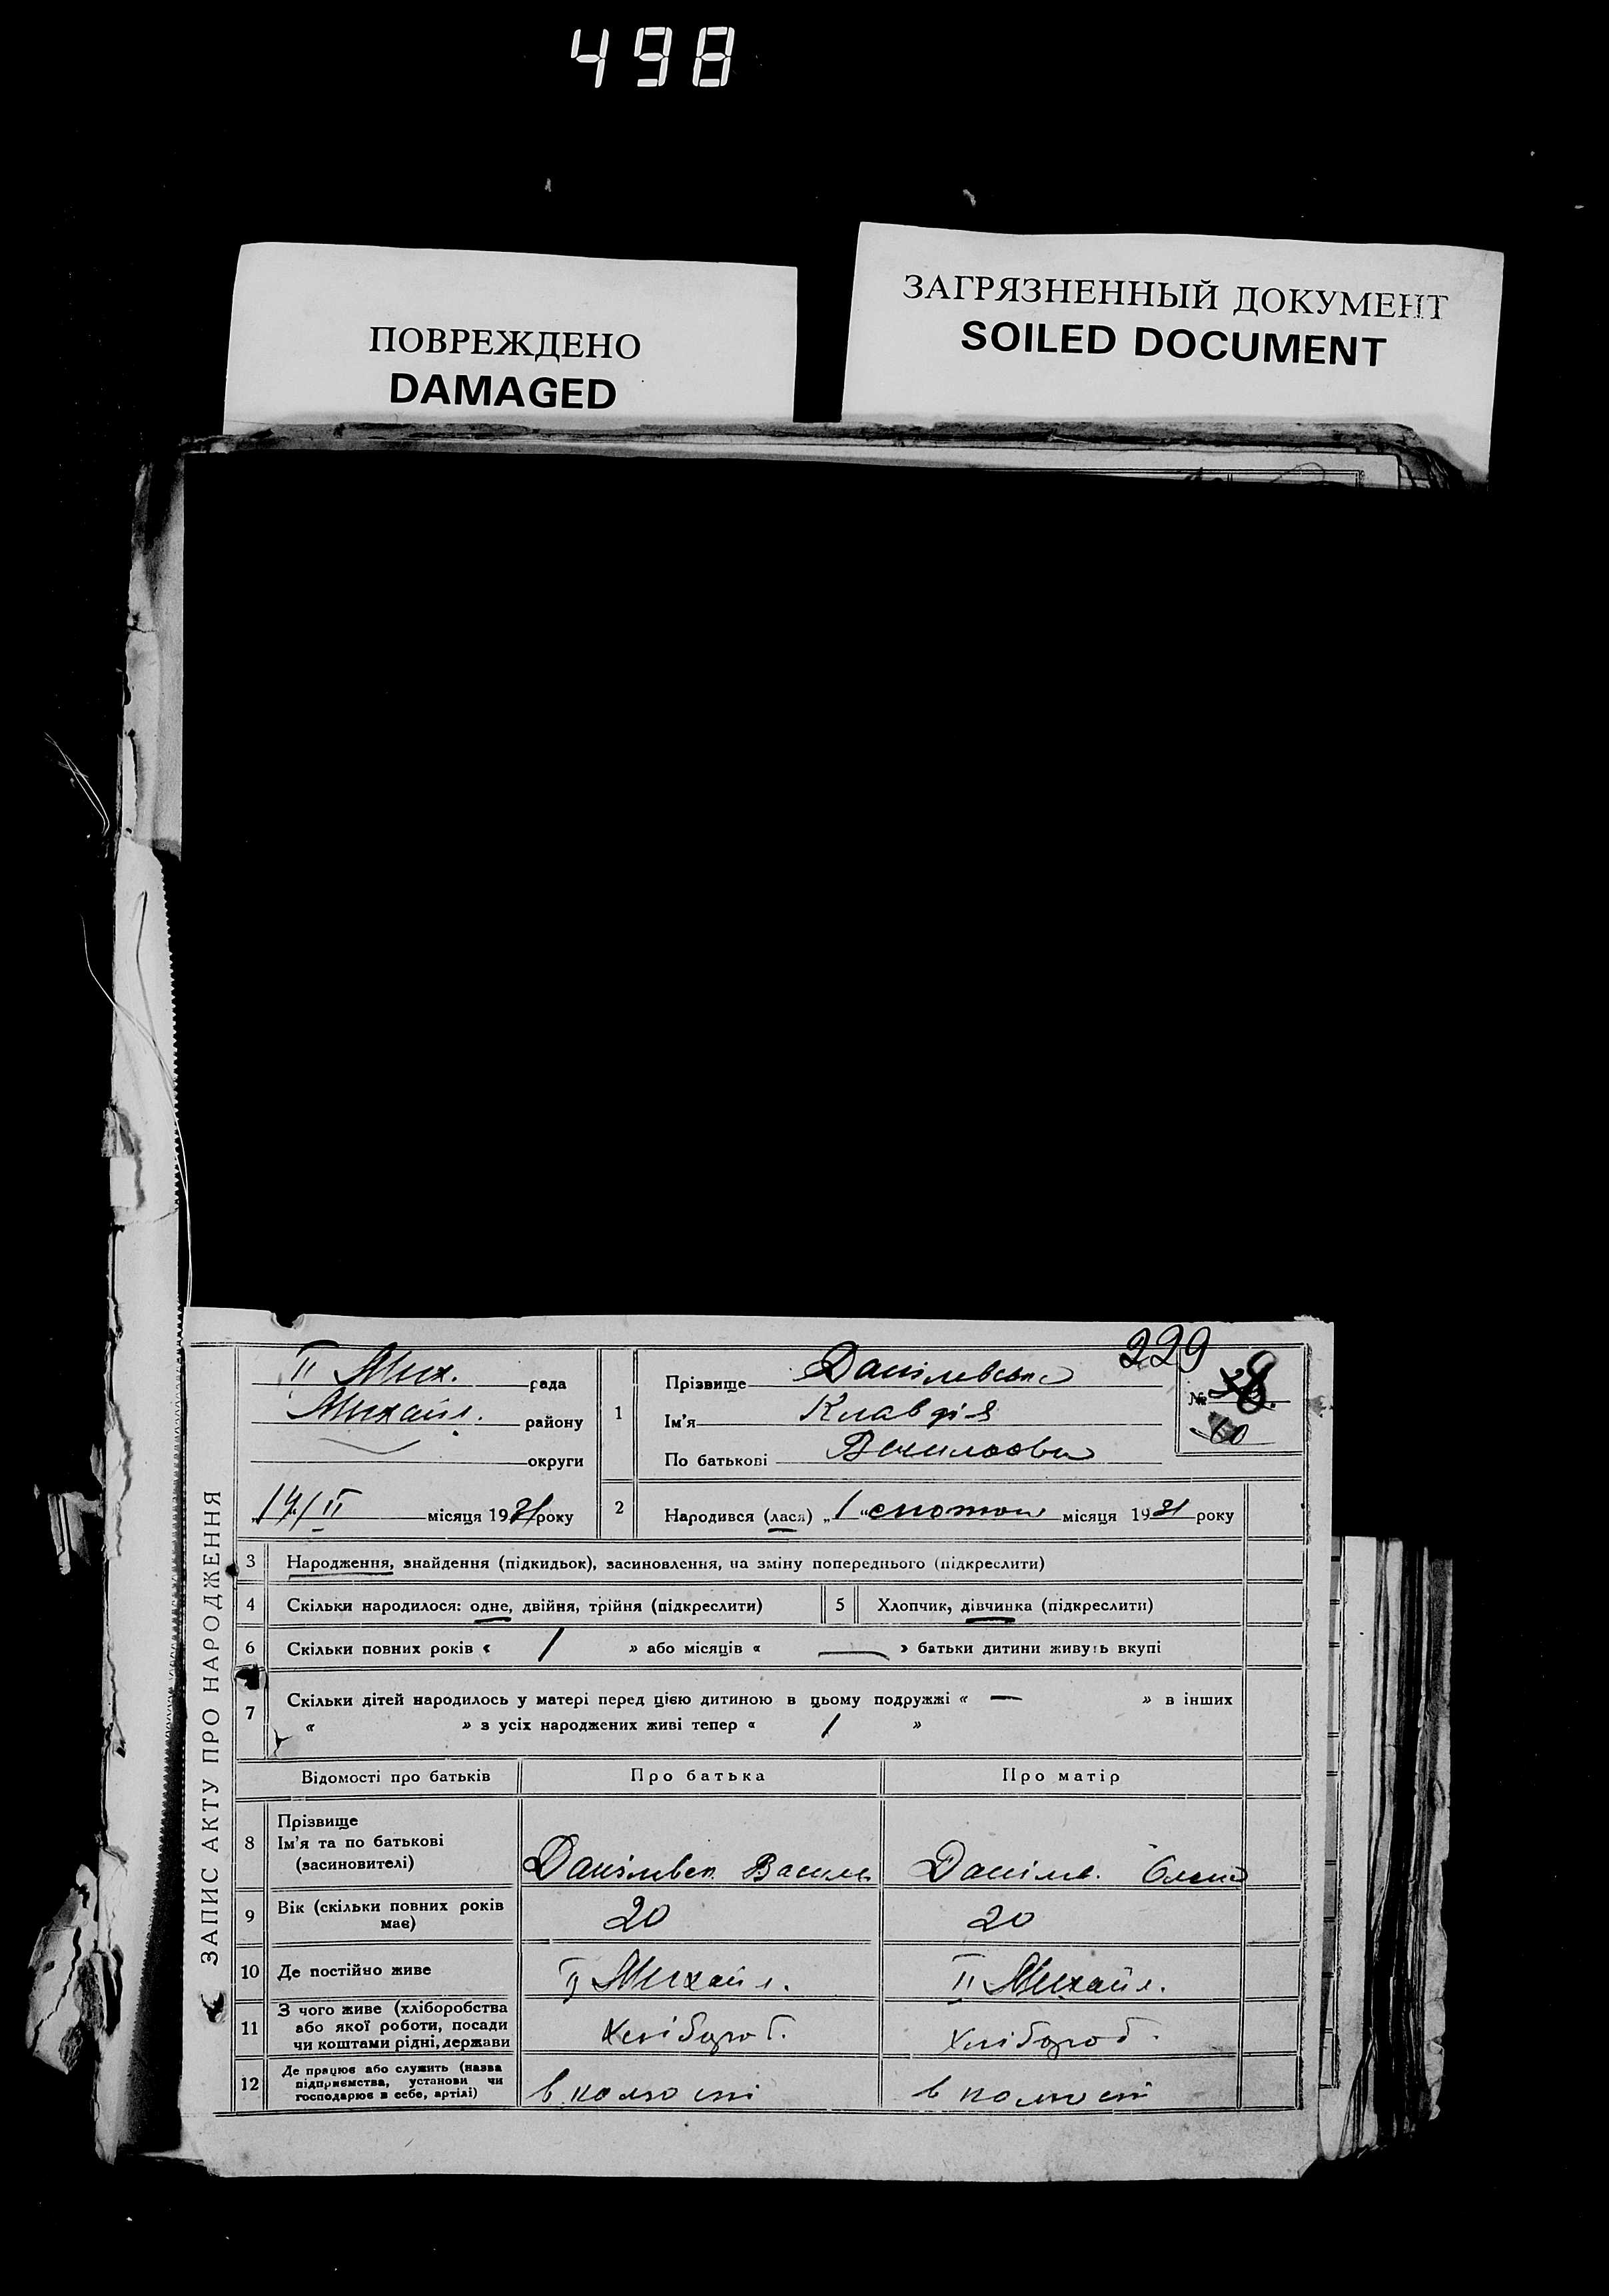 498
ПОВРЕЖДЕНО
DAMAGED
ЗАГРЯЗНЕННЫЙ ДОКУМЕНТ
SOILED DOCUMENT
ЗАПИС АКТУ ПРО НАРОДЖЕННЯ
229
II Мих. рада
Михайл. району
округи
14/II місяця 1931 року
1 Прізвище Данілевська
Ім'я Клавдія
По батькові
№ 8.
2 Народився (лася) „1“ місяця 1931 року
3 Народження, знайдення (підкидьок), засиновлення, на зміну попереднього (підкреслити)
4 Скільки народилося: одне, двійня, трійня (підкреслити) 5 Хлопчик, дівчинка (підкреслити)
6 Скільки повних років « 1 » або місяців « — » батьки дитини живуть вкупі
7 Скільки дітей народилось у матері перед цією дитиною в цьому подружжі « — » в інших
« » з усіх народжених живі тепер « 1 »
Відомості про батьків Про батька Про матір
8 Прізвище
Ім'я та по батькові
(засиновителі) Данілевск. Василь Даніле.
9 Вік (скільки повних років
має) 20 20
10 Де постійно живе II Михайл. II Михайл.
11 З чого живе (хліборобства
або якої роботи, посади
чи коштами рідні, держави Хлібороб. Хлібороб.
12 Де працює або служить (назва
підприємства, установи чи
господарює в себе, артілі) в в